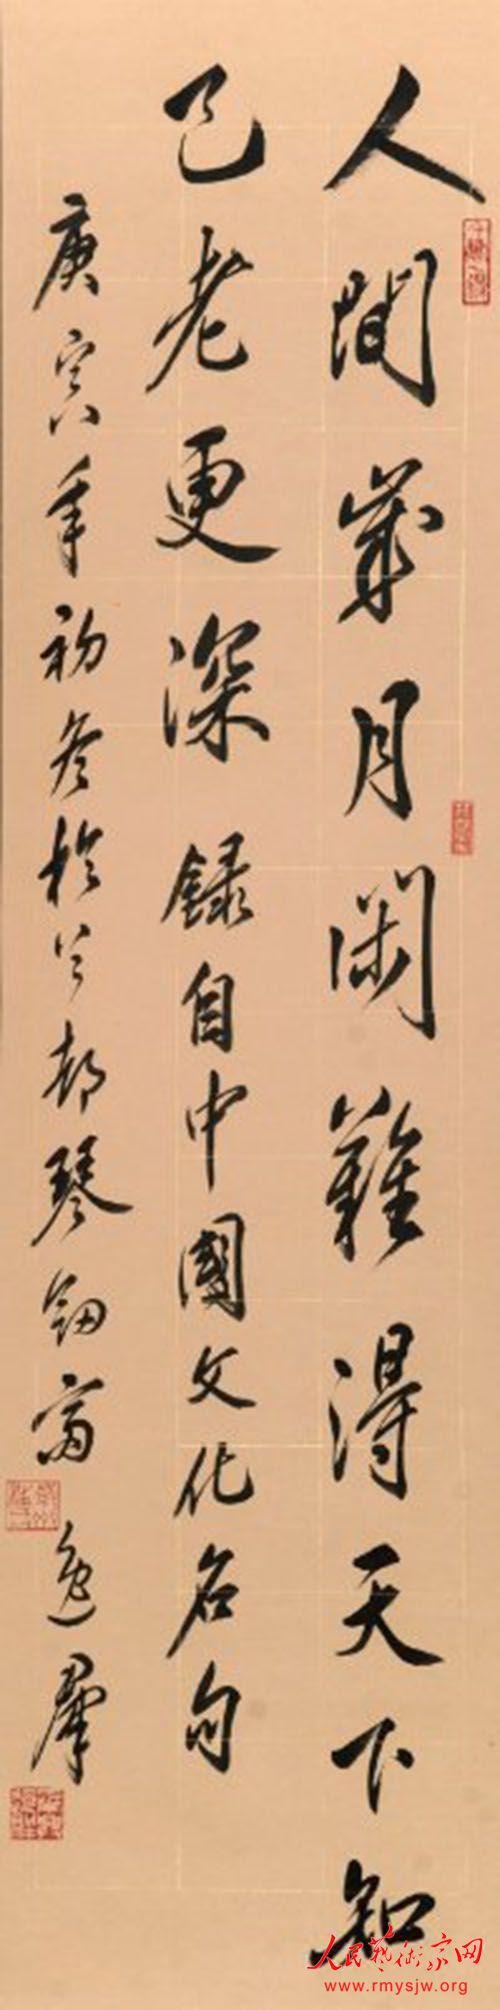 人間歲月閑難得天下知
己老更深 錄自中國文化名句
庚寅年初冬於都琴劍齋 逸羣
人民藝術家网
www.rmysjw.org